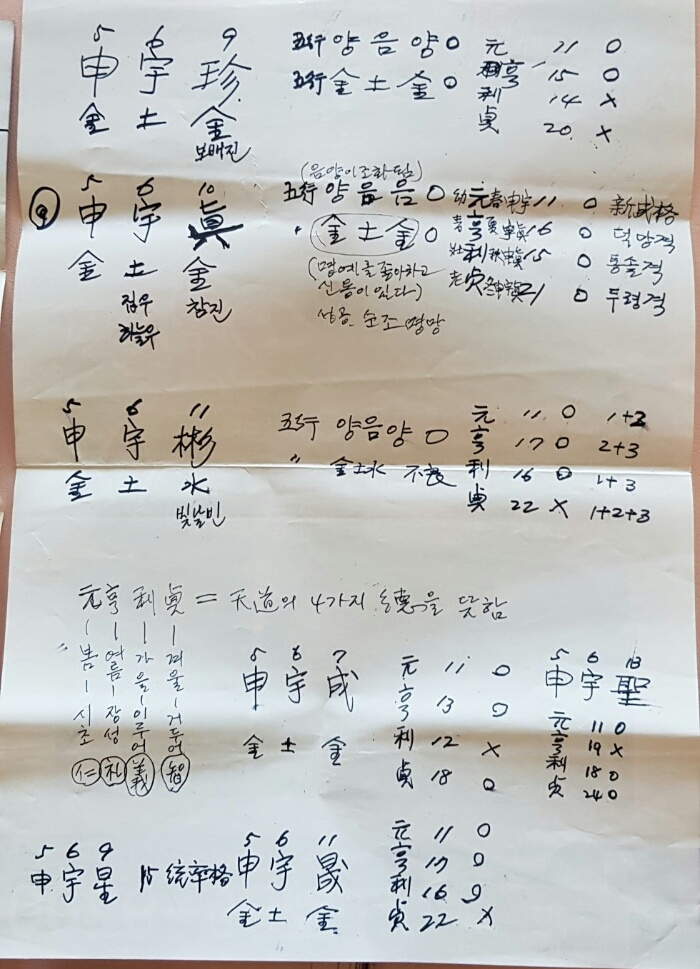 5 6 9
申 宇 珍
金 土 金
보배진
五行 양 음 양 0
五行 金 土 金 0
元 11 0
亨 15 0
利 14 x
貞 20 x
5 6 10
申 宇 眞
金 土 金
집우 참진
하늘우
(음양이 조화됨)
五行 양 음 음 0
金 土 金 0
(명예를 좋아하고
신용이 있다)
성공 순조 명망
幼 元 春 申宇 11 0 新成格
青 亨 夏 宇眞 16 0 덕망격
壯 利 秋 申眞 15 0 통솔격
老 貞 21 0 두령격
5 6 11
申 宇 彬
金 土 水
빛날빈
五行 양음양 0
〃 金土水 不良
元 11 0 1+2
亨 17 0 2+3
利 16 0 1+3
貞 22 x 1+2+3
元亨利貞 = 天道의 4가지 德을 뜻함
元 - 봄 - 시초 仁
亨 - 여름 - 장성 礼
利 - 가을 - 이루어 義
貞 - 겨울 - 거두어 智
5 6 7
申 宇 成
金 土 金
元 11 0
亨 13 0
利 12 x
貞 18 0
5 6 13
申 宇 聖
元 11 0
亨 19 x
利 18 0
貞 24 0
5 6 9
申 宇 星 15 統率格
5 6 11
申 宇 晟
金 土 金
元 11 0
亨 17 0
利 16 0
貞 22 x